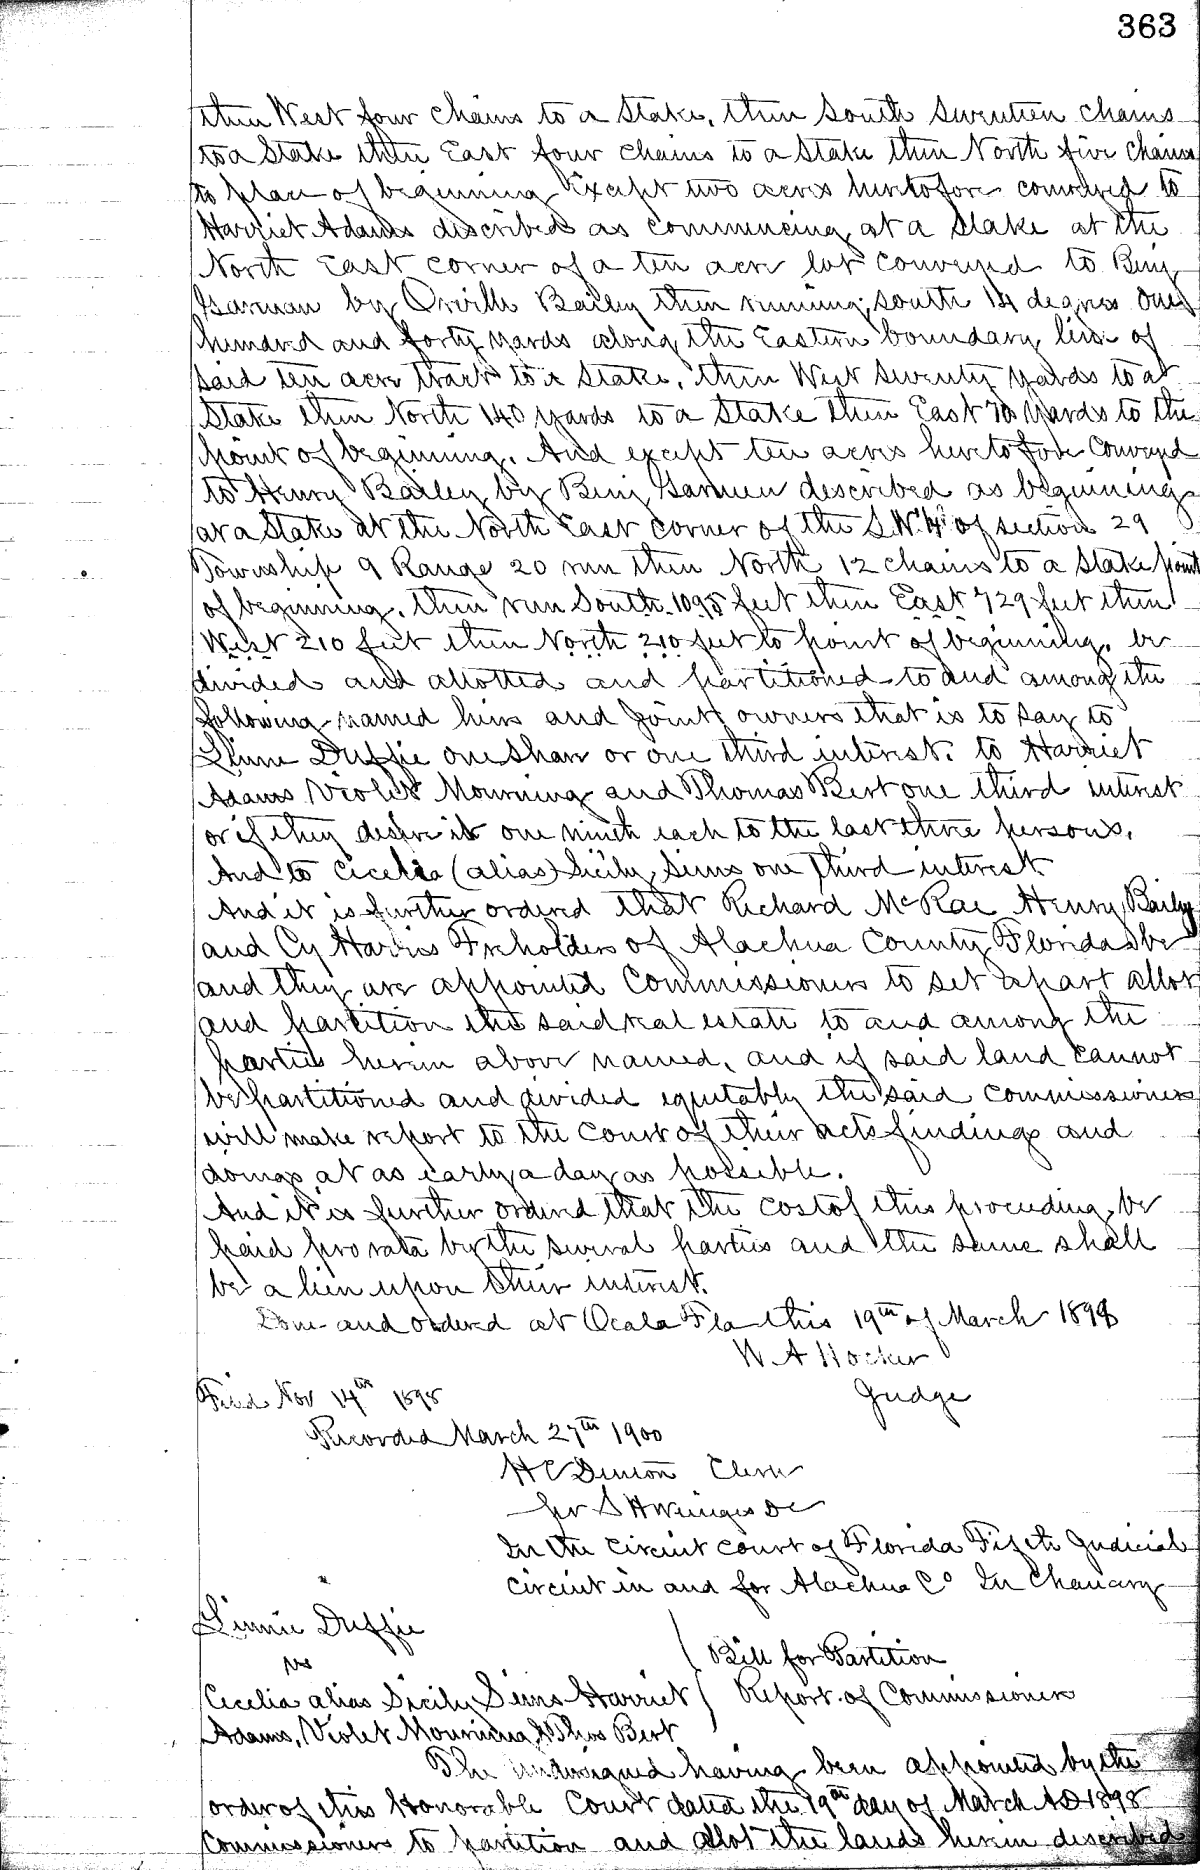 363
then West four chains to a Stake, then South Seventeen chains
to a Stake then East four chains to a Stake then North five chains
to place of beginning. Except two acres heretofore conveyed to
Harriet Adams described as commencing at a Stake at the
North East corner of a ten acre lot conveyed to Benj
Garman by Orville Bailey then running South 14 degrees One
hundred and forty yards along the Eastern boundary line of
said ten acre tract to a Stake, then West Seventy yards to a
Stake then North 140 yards to a Stake then East 70 yards to the
point of beginning. And except ten acres heretofore Conveyed
to Henry Bailey by Benj Garmen described as beginning
at a Stake at the North East corner of the S.W. 4th of section 29
Township 9 Range 20 run then North 12 chains to a Stake point
of beginning. then run South 1095 feet then East 729 feet then
West 210 feet then North 210 feet to point of beginning, be
divided and allotted and partitioned to and among the
following named heirs and Joint owners that is to say to
Linnie Duffie one Share or one third interest. to Harriet
Adams Violet Mourning and Thomas Bert one third interest
or if they desire it one ninth each to the last three persons.
And to Cicelia (alias) Sicily Sims one third interest
And it is further ordered that Richard McRae Henry Baily
and Cy Harris Freholders of Alachua County Florida be
and they are appointed Commissioners to set apart allot
and partition the said real estate to and among the
parties herein above named, and if said land cannot
be partitioned and divided equitably the said Commissioners
will make report to the Court of their acts findings and
doings at as early a day as possible.
And it is further ordered that the cost of this proceeding be
paid pro rata by the several parties and the same shall
be a lien upon their interest.
Done and ordered at Ocala Fla this 19th of March 1898
W. A Hocker
Judge
Filed Nov 14th 1898
Recorded March 27th 1900
H C Denton Clerk
per S H Wienges DC
In the Circuit Court of Florida Fifth Judicial
Circuit in and for Alachua Co In Chancery
Linnie Duffie
vs
Bill for Partition
Cecelia alias Sicily Sims Harriet Report of Commissioners
Adams, Violet Mourning & Thos Bert
The undersigned having been appointed by the
order of this Honorable Court dated the 19th day of March AD 1898
Commissioners to partition and allot the lands herein described